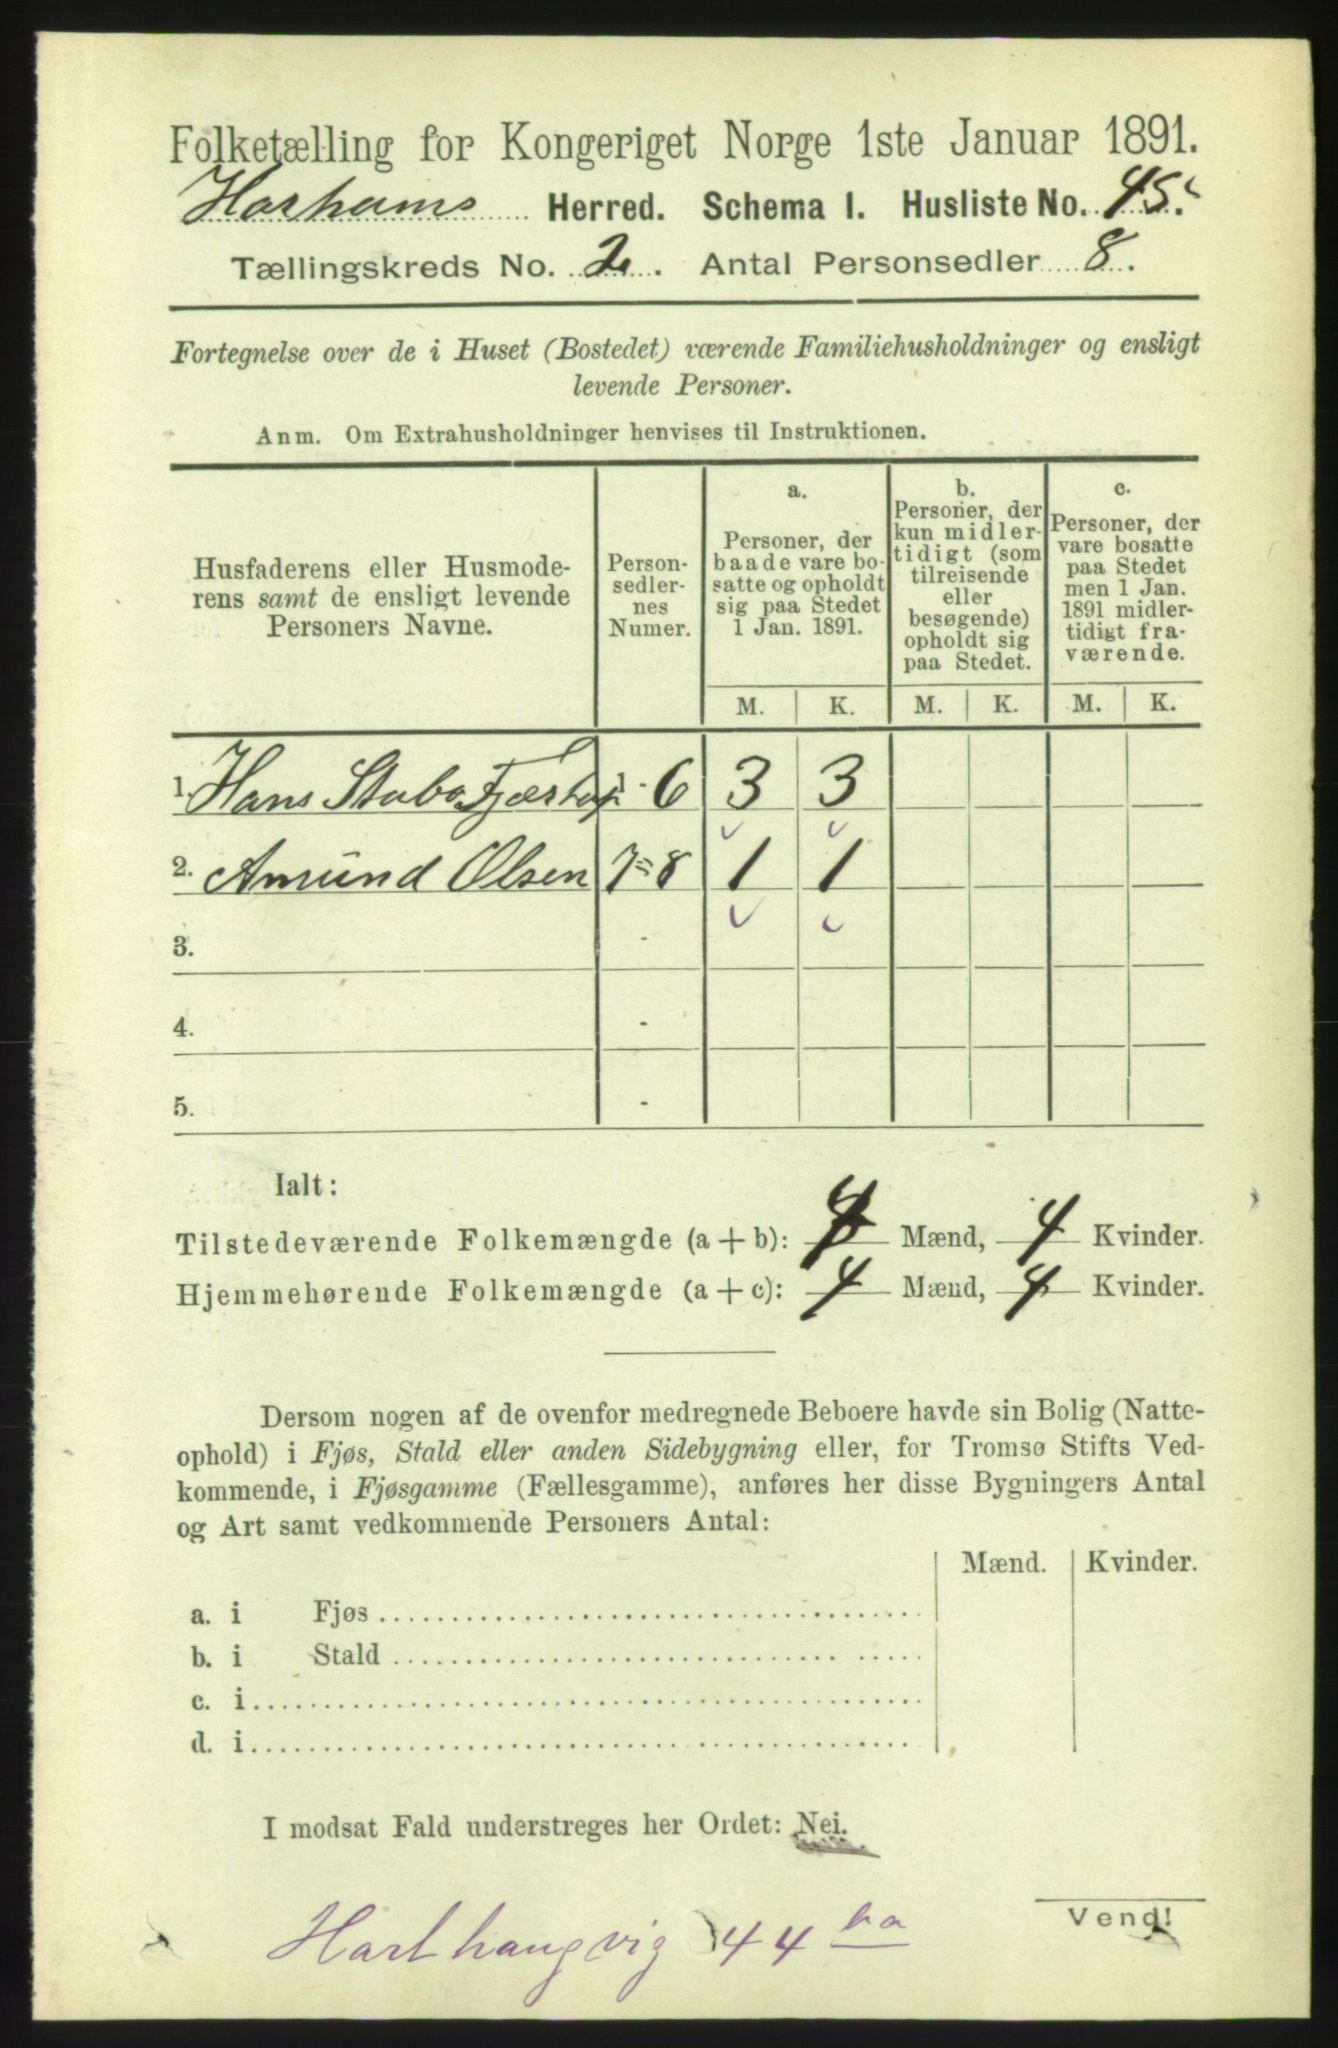 Folketælling for Kongeriget Norge 1ste Januar 1891.
Harhams Herred. Schema I. Husliste No. 45.
Tællingskreds No. 2. Antal Personsedler 8.
Fortegnelse over de i Huset (Bostedet) værende Familiehusholdninger og ensligt
levende Personer.
Anm. Om Extrahusholdninger henvises til Instruktionen.
Husfaderens eller Husmode-
rens samt de ensligt levende
Personers Navne.
Person-
sedler-
nes
Numer.
a.
Personer, der
baade vare bo-
satte og opholdt
sig paa Stedet
1 Jan. 1891.
b.
Personer, der
kun midler-
tidigt (som
tilreisende
eller
besøgende)
opholdt sig
paa Stedet.
c.
Personer, der
vare bosatte
paa Stedet
men 1 Jan.
1891 midler-
tidigt fra-
værende.
M. K. M. K. M. K.
1. Hans Stubø 1 - 6 3 3
2. Amund Olsen 7 - 8 1 1
3. -
4. -
5. -
Ialt:
Tilstedeværende Folkemængde (a + b): 4 Mænd, 4 Kvinder.
Hjemmehørende Folkemængde (a + c): 4 Mænd, 4 Kvinder.
Dersom nogen af de ovenfor medregnede Beboere havde sin Bolig (Natte-
ophold) i Fjøs, Stald eller anden Sidebygning eller, for Tromsø Stifts Ved-
kommende, i Fjøsgamme (Fællesgamme), anføres her disse Bygningers Antal
og Art samt vedkommende Personers Antal:
Mænd. Kvinder.
a. i Fjøs
b. i Stald
c. i
d. i
I modsat Fald understreges her Ordet: Nei.
Vend!
44 ba